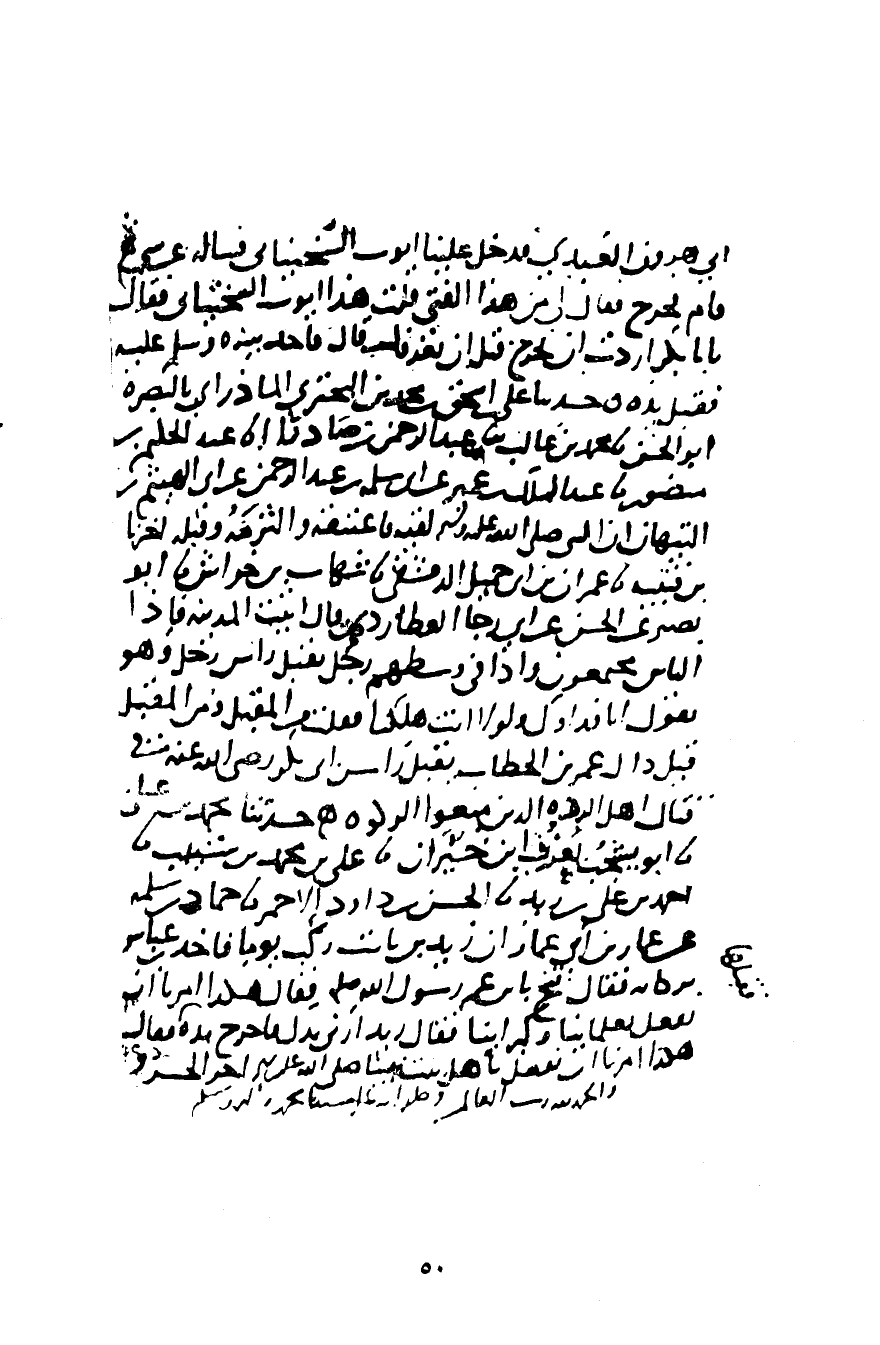 ابي هرون العبدي فدخل علينا ايوب السختياني فساله عن شي
قام ليخرج فقال لي من هذا الفتى قلت هذا ايوب السختياني فقال
يا با بكر اردت ان تخرج قبل ان قال فاخذ بيده وسلم عليه
فقبل يده حدثنا علي محمد بن البختري المادراي بالبصرة
ابو محمد بن غالب عبد الرحمن عبد الحكم بن
منصور نا عبد الملك بن عمير عن ابي سلمه بن عبد الرحمن عن ابي الهيثم بن
التيهان ان النبي صلى الله عليه وسلم لقيه فاعتنقه والتزمه وقبله
بن قتيبه نا عمران بن ابي جميل الدمشقي نا شهاب بن خراش نا ابو
نصير عن الحسن عن ابي رجا العطاردي قال اتيت المدينه فاذا
الناس مجتمعون واذا في وسطهم رجل يقبل راس رجل وهو
يقول انا فداوك ولولا انت هلكنا فقلت من المقبل ومن المقبل
قيل ذاك عمر بن الخطاب يقبل راس ابي بكر رضي الله عنه في
قتال اهل الرده الذين منعوا الزكوه حدثنا محمد بن
نا ابو يعرف بابن نا علي بن محمد بن شبيب نا
احمد بن علي بن زيد نا الحسن بن داود الاحمر نا حماد بن سلمه
عن عمار بن ابي عمار ان زيد بن ثابت ركب يوما فاخذ بن عباس
بركابه فقال تنح يا بن عم رسول الله صلعم فقال هكذا امرنا ان
نفعل بعلمائنا وكبرائنا فقال زيد ارني يدك فاخرج يده فقال
هكذا امرنا ان نفعل باهل بيت نبينا صلى الله عليه وسلم اخر الجزء
والحمد لله رب العالمين وصلواته على سيدنا محمد واله وسلم
فقبلها
٥٠